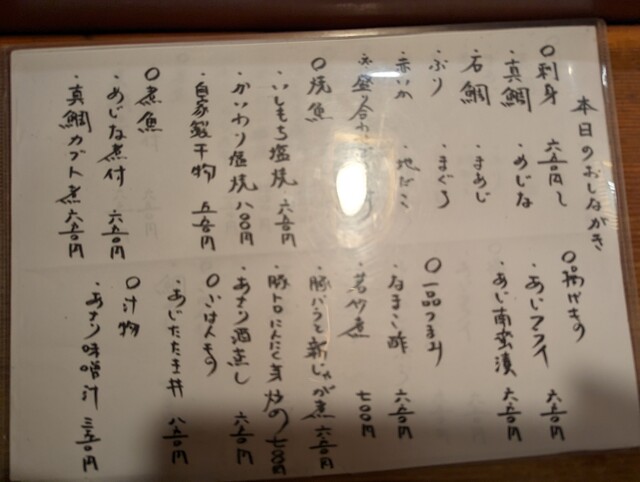 本日のおしながき
○刺身 六五〇円〜
・真鯛 ・めじな
・石鯛 ・まあじ
・ぶり ・まぐろ
・赤いか ・地だこ
○焼魚
・いしもち塩焼 六五〇円
・かいわり塩焼 八〇〇円
・自家製干物 五五〇円
○煮魚
・めじな煮付 六五〇円
・真鯛カブト煮 六五〇円
○揚げもの
・あじフライ 六五〇円
・あじ南蛮漬 六五〇円
○一品つまみ
・なまこ酢 六五〇円
・若竹煮 七〇〇円
・豚バラと新じゃが煮 六五〇円
・豚トロにんにく芽炒め 七〇〇円
・あさり酒蒸し 六五〇円
○ごはんもの
・あじたたき丼 八五〇円
○汁物
・あさり味噌汁 三五〇円